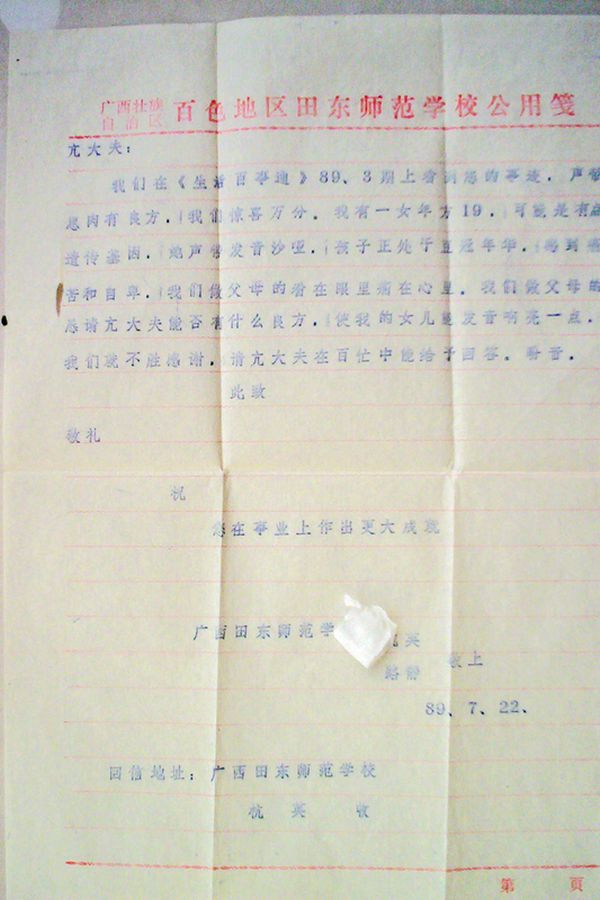 广西壮族
自治区 百色地区田东师范学校公用笺
亢大夫：
我们在《生活百事通》89、3期上看到您的事迹，声带
息肉有良方，我们惊喜万分。我有一女年方19，可能是有点
遗传基因，她声带发音沙哑，孩子正处于豆蔻年华，感到
苦和自卑，我们做父母的看在眼里痛在心里。我们做父母的
恳请亢大夫能否有什么良方，使我的女儿能发音响亮一点，
我们就不胜感谢，请亢大夫在百忙中能给予回答。盼音。
此致
敬礼
祝
您在事业上作出更大成就
广西田东师范学 杭英
敬上
89、7、22、
回信地址：广西田东师范学校
杭 英 收
第 页